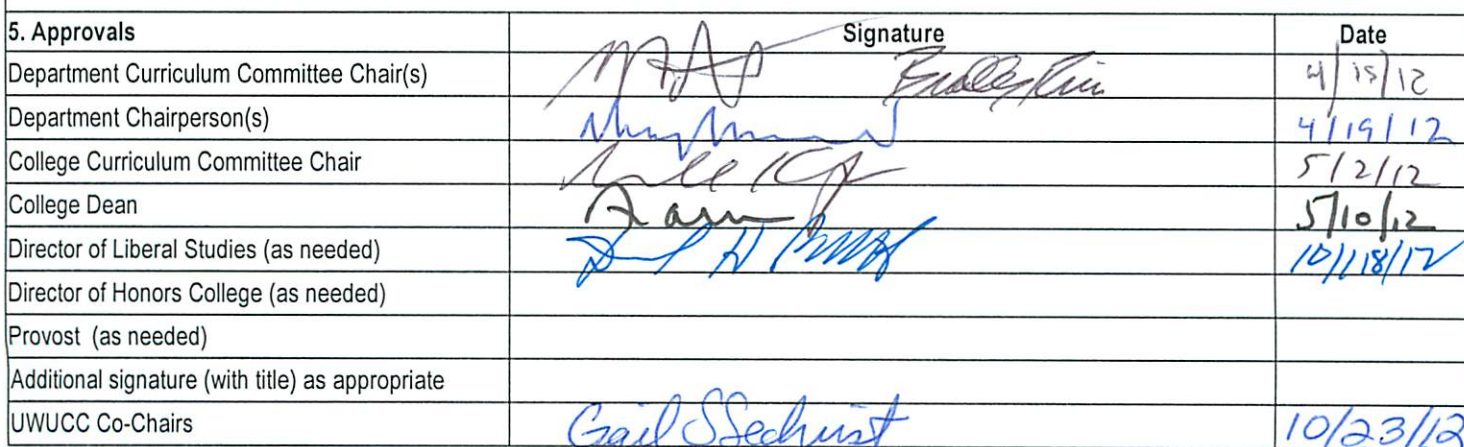 5. Approvals Signature Date
Department Curriculum Committee Chair(s) 4/15/12
Department Chairperson(s) 4/19/12
College Curriculum Committee Chair 5/2/12
College Dean 5/10/12
Director of Liberal Studies (as needed) 10/18/12
Director of Honors College (as needed)
Provost (as needed)
Additional signature (with title) as appropriate
UWUCC Co-Chairs Gail S Sechrist 10/23/12